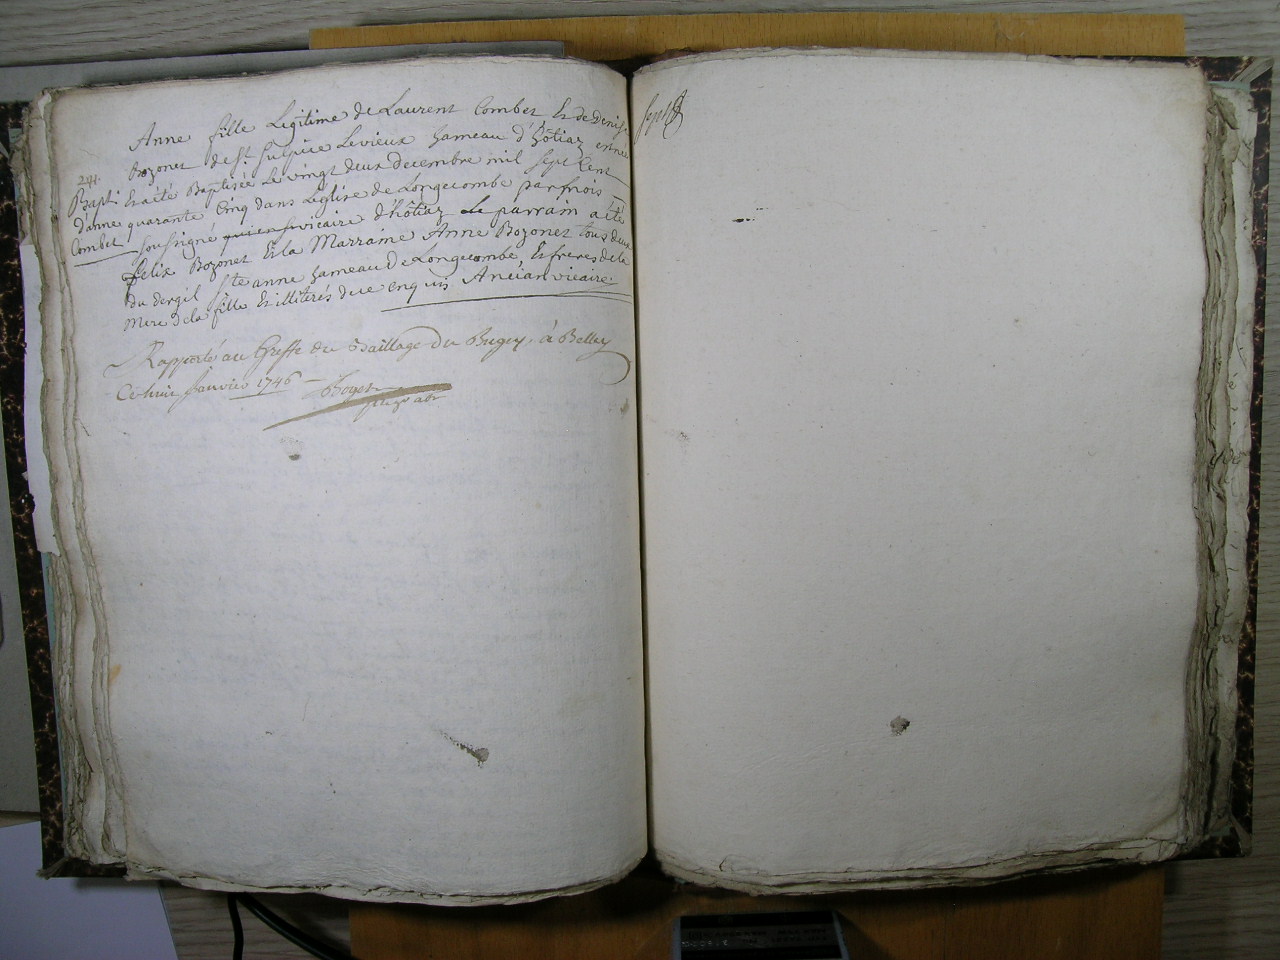 Anne fille Legitime de Laurent Combet Et de Denise
Bozonet de St Sulpice Levieux hameau d'hôtiaz est née
Et a été Baptisée Le vingt deux decembre mil sept Cent
quarante Cinq dans L'eglise de Longecombe par
soussigné vicaire d'hôtiaz Le parrain a été
felix Bozonet Et la Marraine Anne Bozonet tous deux
du dergil ste anne hameau de Longecombe, Et freres de la
Mere de la fille Et illiterés de ce enquis Ancian vicaire.
241.
Bapt:
d'anne
Combet
Rapporté au Greffe du Baillage du Bugey à Belley
Ce huit Janvier 1746
sept